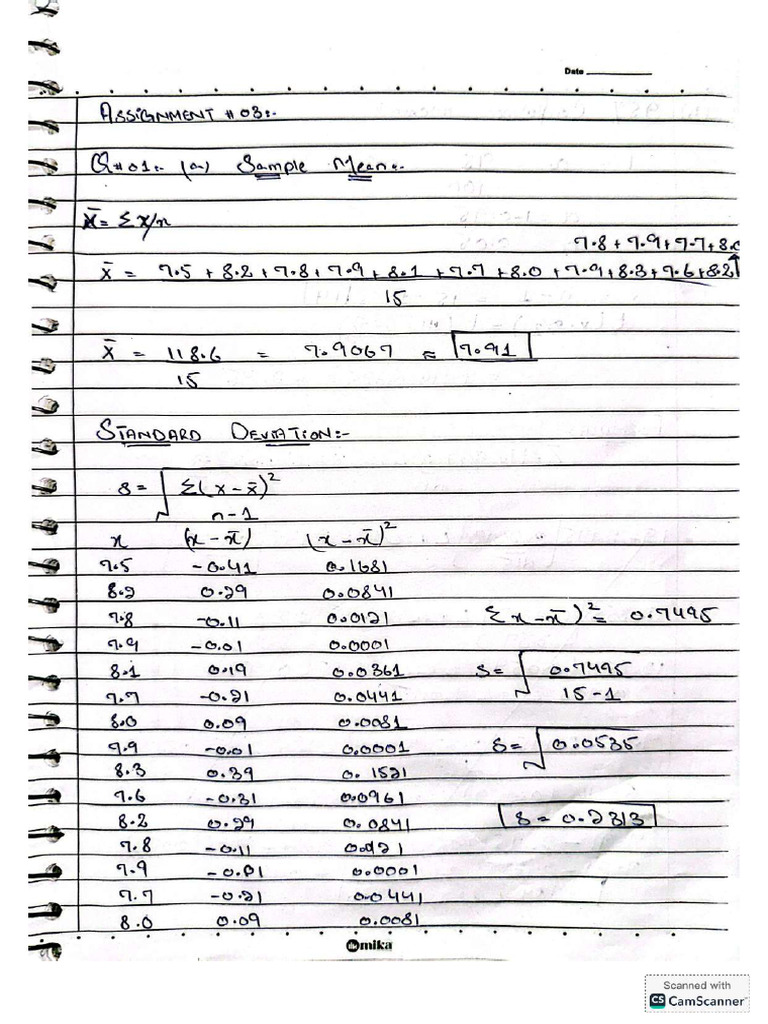 Date
ASSIGNMENT # 03:-
Q#01:- (a) Sample Mean:-
X̄ = Σx/n
7.8 + 7.9 + 7.7 + 8.0
x̄ = 7.5 + 8.2 + 7.8 + 7.9 + 8.1 + 7.7 + 8.0 + 7.9 + 8.3 + 7.6 + 8.2
15
x̄ = 118.6 = 7.9067 ≈ 7.91
15
STANDARD DEVIATION:-
s = √ Σ(x - x̄)²
n - 1
x (x - x̄) (x - x̄)²
7.5 -0.41 0.1681
8.2 0.29 0.0841
7.8 -0.11 0.0121 Σ(x - x̄)² = 0.7495
7.9 -0.01 0.0001
8.1 0.19 0.0361 s = √ 0.7495
7.7 -0.21 0.0441 15 - 1
8.0 0.09 0.0081
7.9 -0.01 0.0001 s = √ 0.0535
8.3 0.39 0.1521
7.6 -0.31 0.0961
8.2 0.29 0.0841 s = 0.2313
7.8 -0.11 0.0121
7.9 -0.01 0.0001
7.7 -0.21 0.0441
8.0 0.09 0.0081
the mika
Scanned with
CS CamScanner